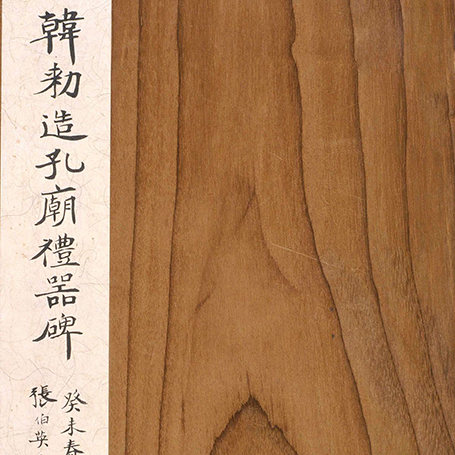 韓勑造孔廟禮器碑
癸未春
張伯英